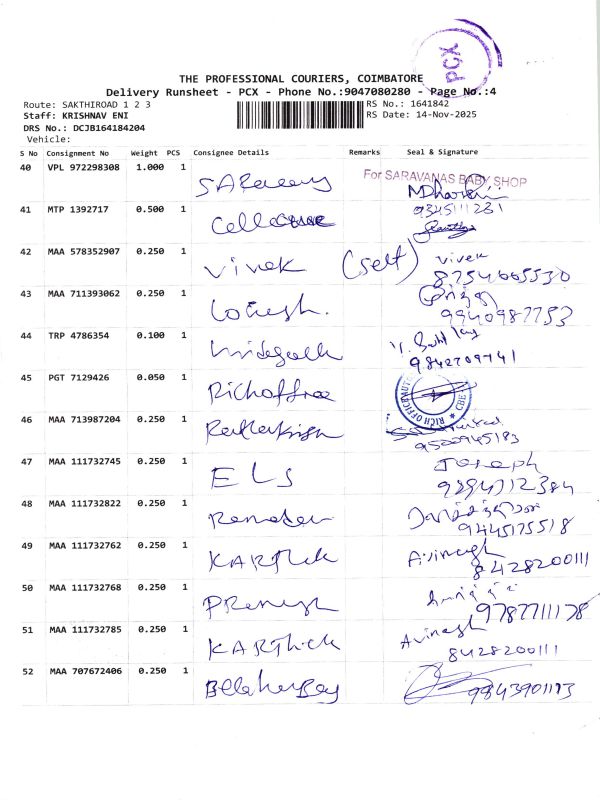 PCX
THE PROFESSIONAL COURIERS, COIMBATORE
Delivery Runsheet - PCX - Phone No.:9047080280 - Page No.:4
Route: SAKTHIROAD 1 2 3 RS No.: 1641842
Staff: KRISHNAV ENI RS Date: 14-Nov-2025
DRS No.: DCJB164184204
Vehicle:
S No Consignment No Weight PCS Consignee Details Remarks Seal & Signature
40 VPL 972298308 1.000 1 For SARAVANAS BABY SHOP
41 MTP 1392717 0.500 1 9345111231
42 MAA 578352907 0.250 1 Vivek (self) Vivek
8754665530
43 MAA 711393062 0.250 1 Lokesh.
9940987753
44 TRP 4786354 0.100 1
9842709741
45 PGT 7129426 0.050 1 RICH OFFICE
46 MAA 713987204 0.250 1
9500945183
47 MAA 111732745 0.250 1 ELS Joseph
9894712384
48 MAA 111732822 0.250 1
9445175518
49 MAA 111732762 0.250 1 KARThick Avinash
8428200111
50 MAA 111732768 0.250 1
9787711178
51 MAA 111732785 0.250 1 KARThick Avinash
8428200111
52 MAA 707672406 0.250 1 9843901173